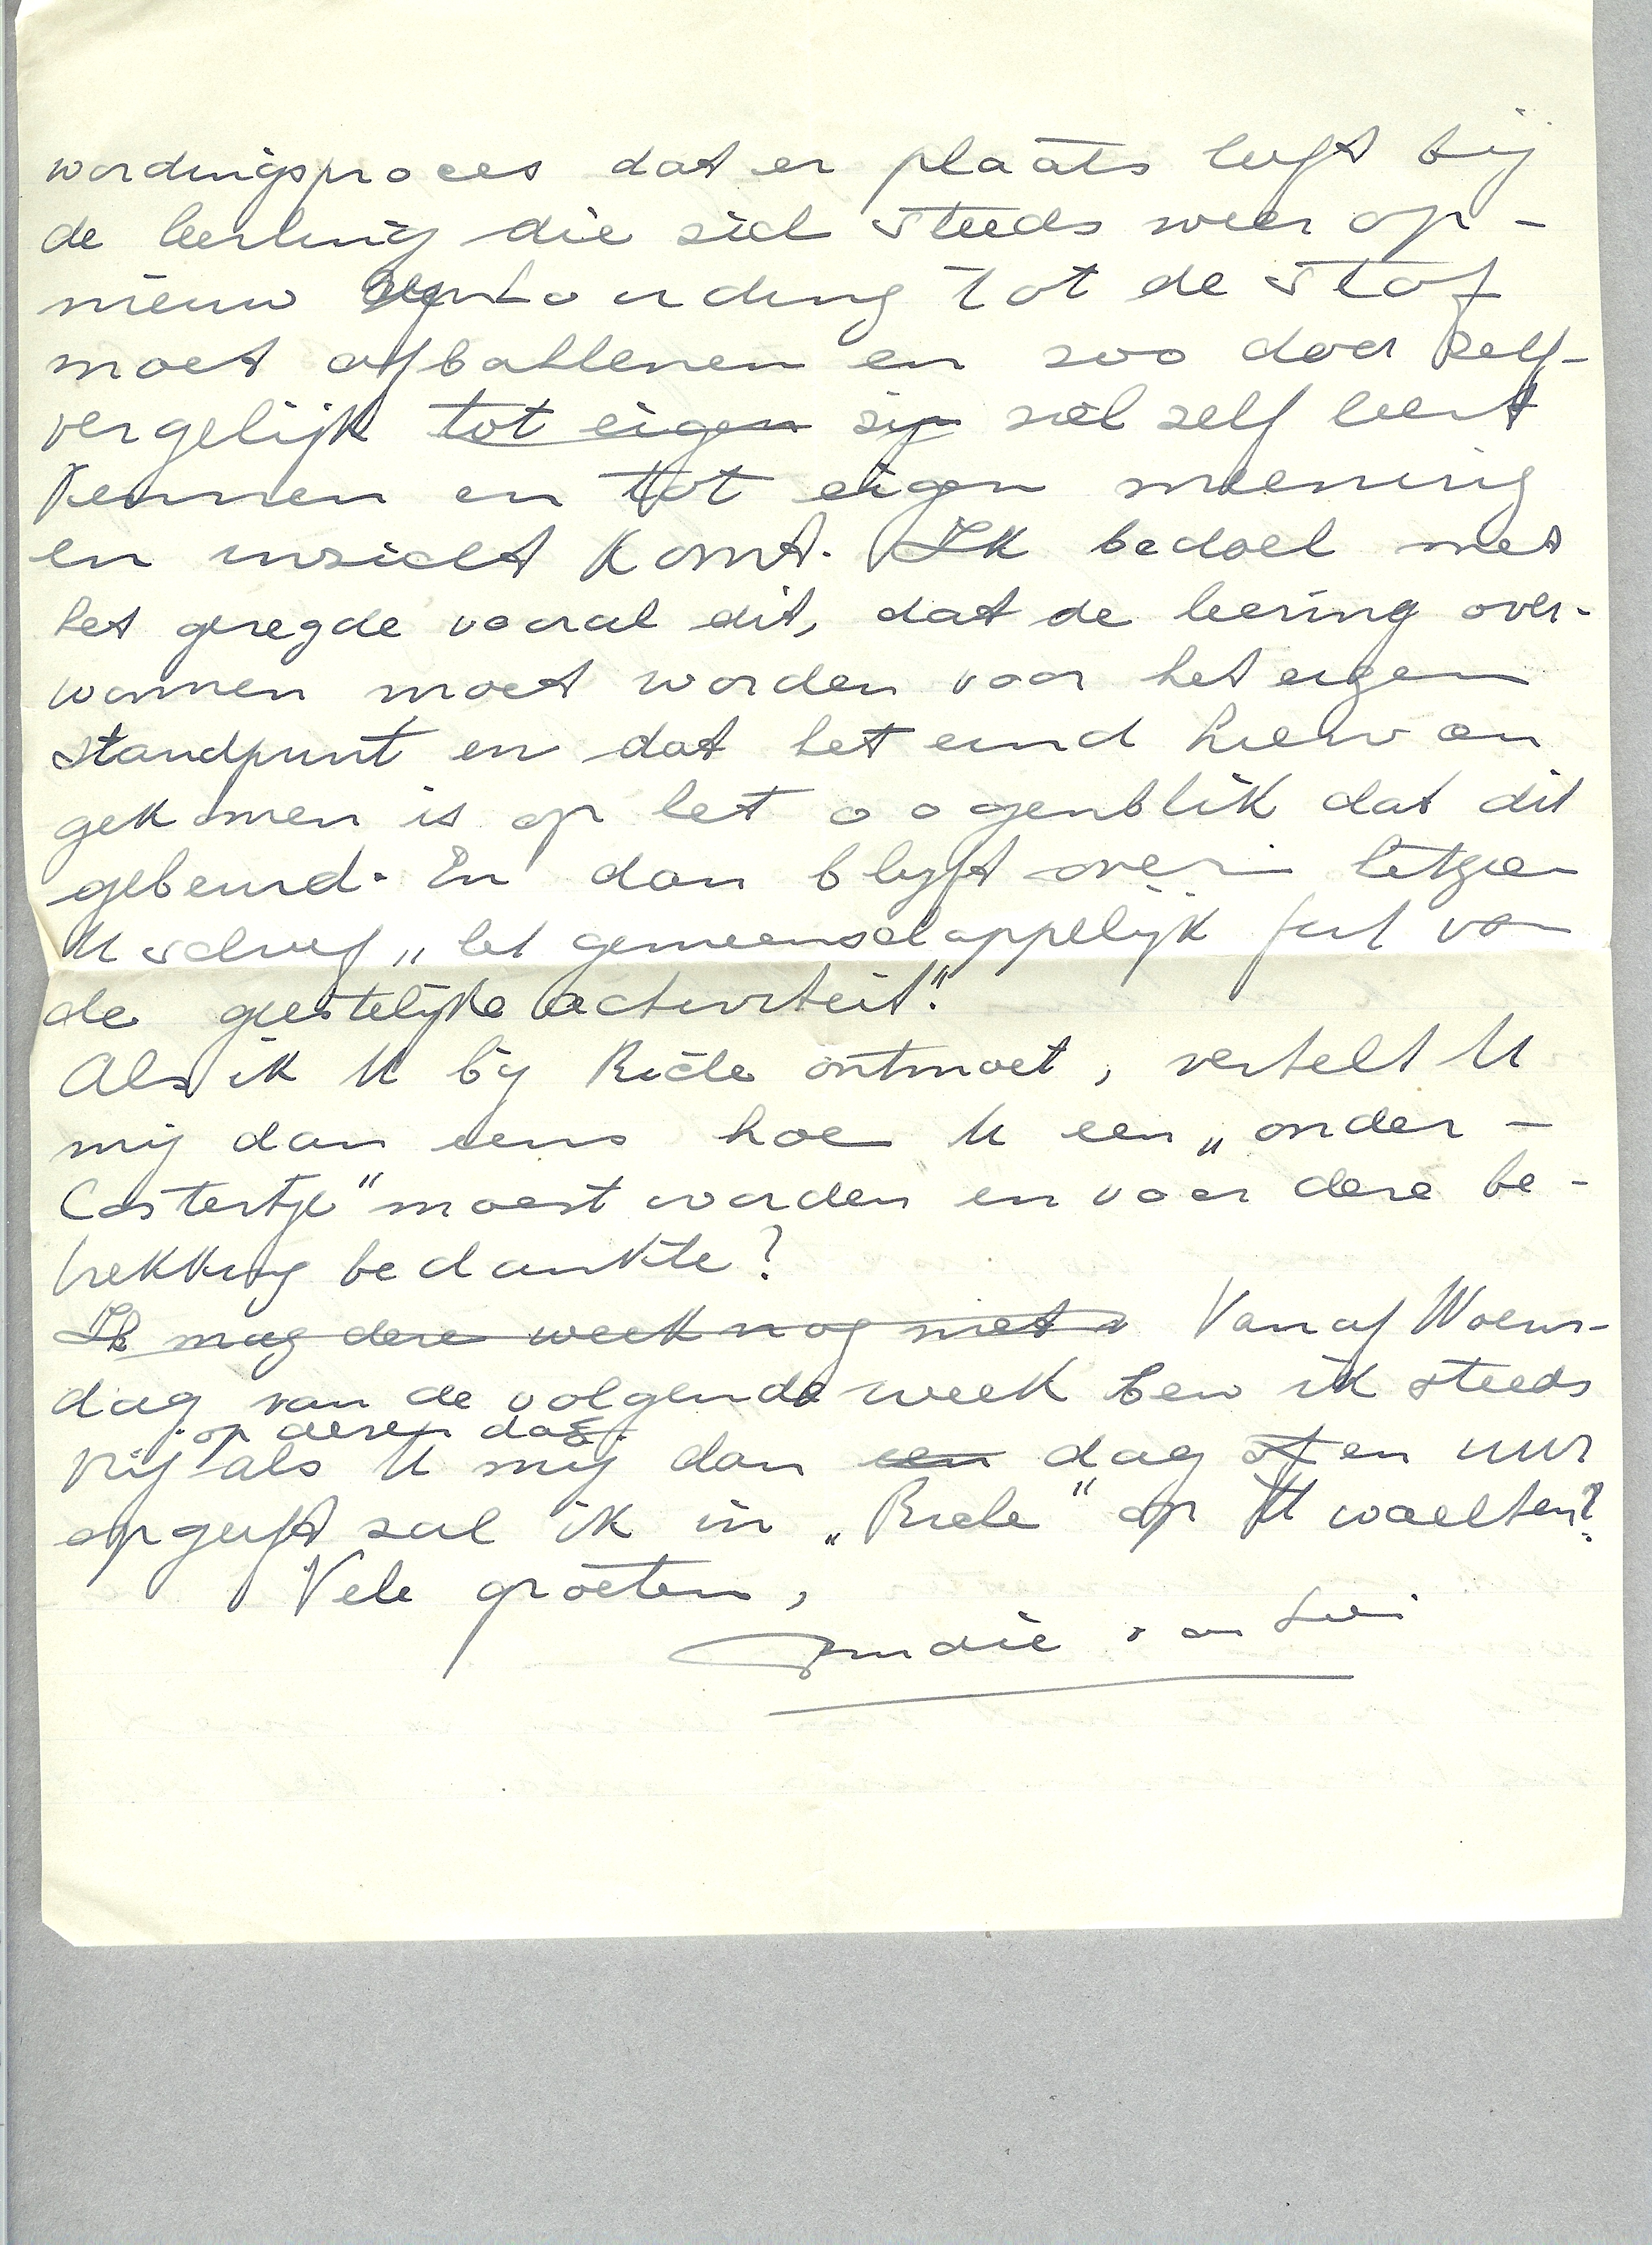 wordingsproces dat er plaats heeft bij
de leerling die zich steeds weer op-
nieuw verhouding tot de stof
moet afbakenen en zoo door zelf-
vergelijk tot eigen zijn zich zelf leert
kennen en tot eigen meening
en inzicht komt. Ik bedoel met
het gezegde vooral dit, dat de leering over-
wonnen moet worden voor het eigen
standpunt en dat het eind hiervan
gekomen is op het oogenblik dat dit
gebeurd. En dan blijft over
U schreef „het gemeenschappelijk feit van
de geestelijke activiteit".
Als ik U bij Riche ontmoet, vertelt U
mij dan eens hoe U een „onder-
Costertje" moest worden en voor deze be-
trekking bedankte?
Ik mag deze week nog niet Vanaf Woens-
dag van de volgende week ben ik steeds
op dezen dag
vrij als U mij dan een dag of en uur
opgeeft zal ik in „Riche" op U wachten?
Vele groeten,